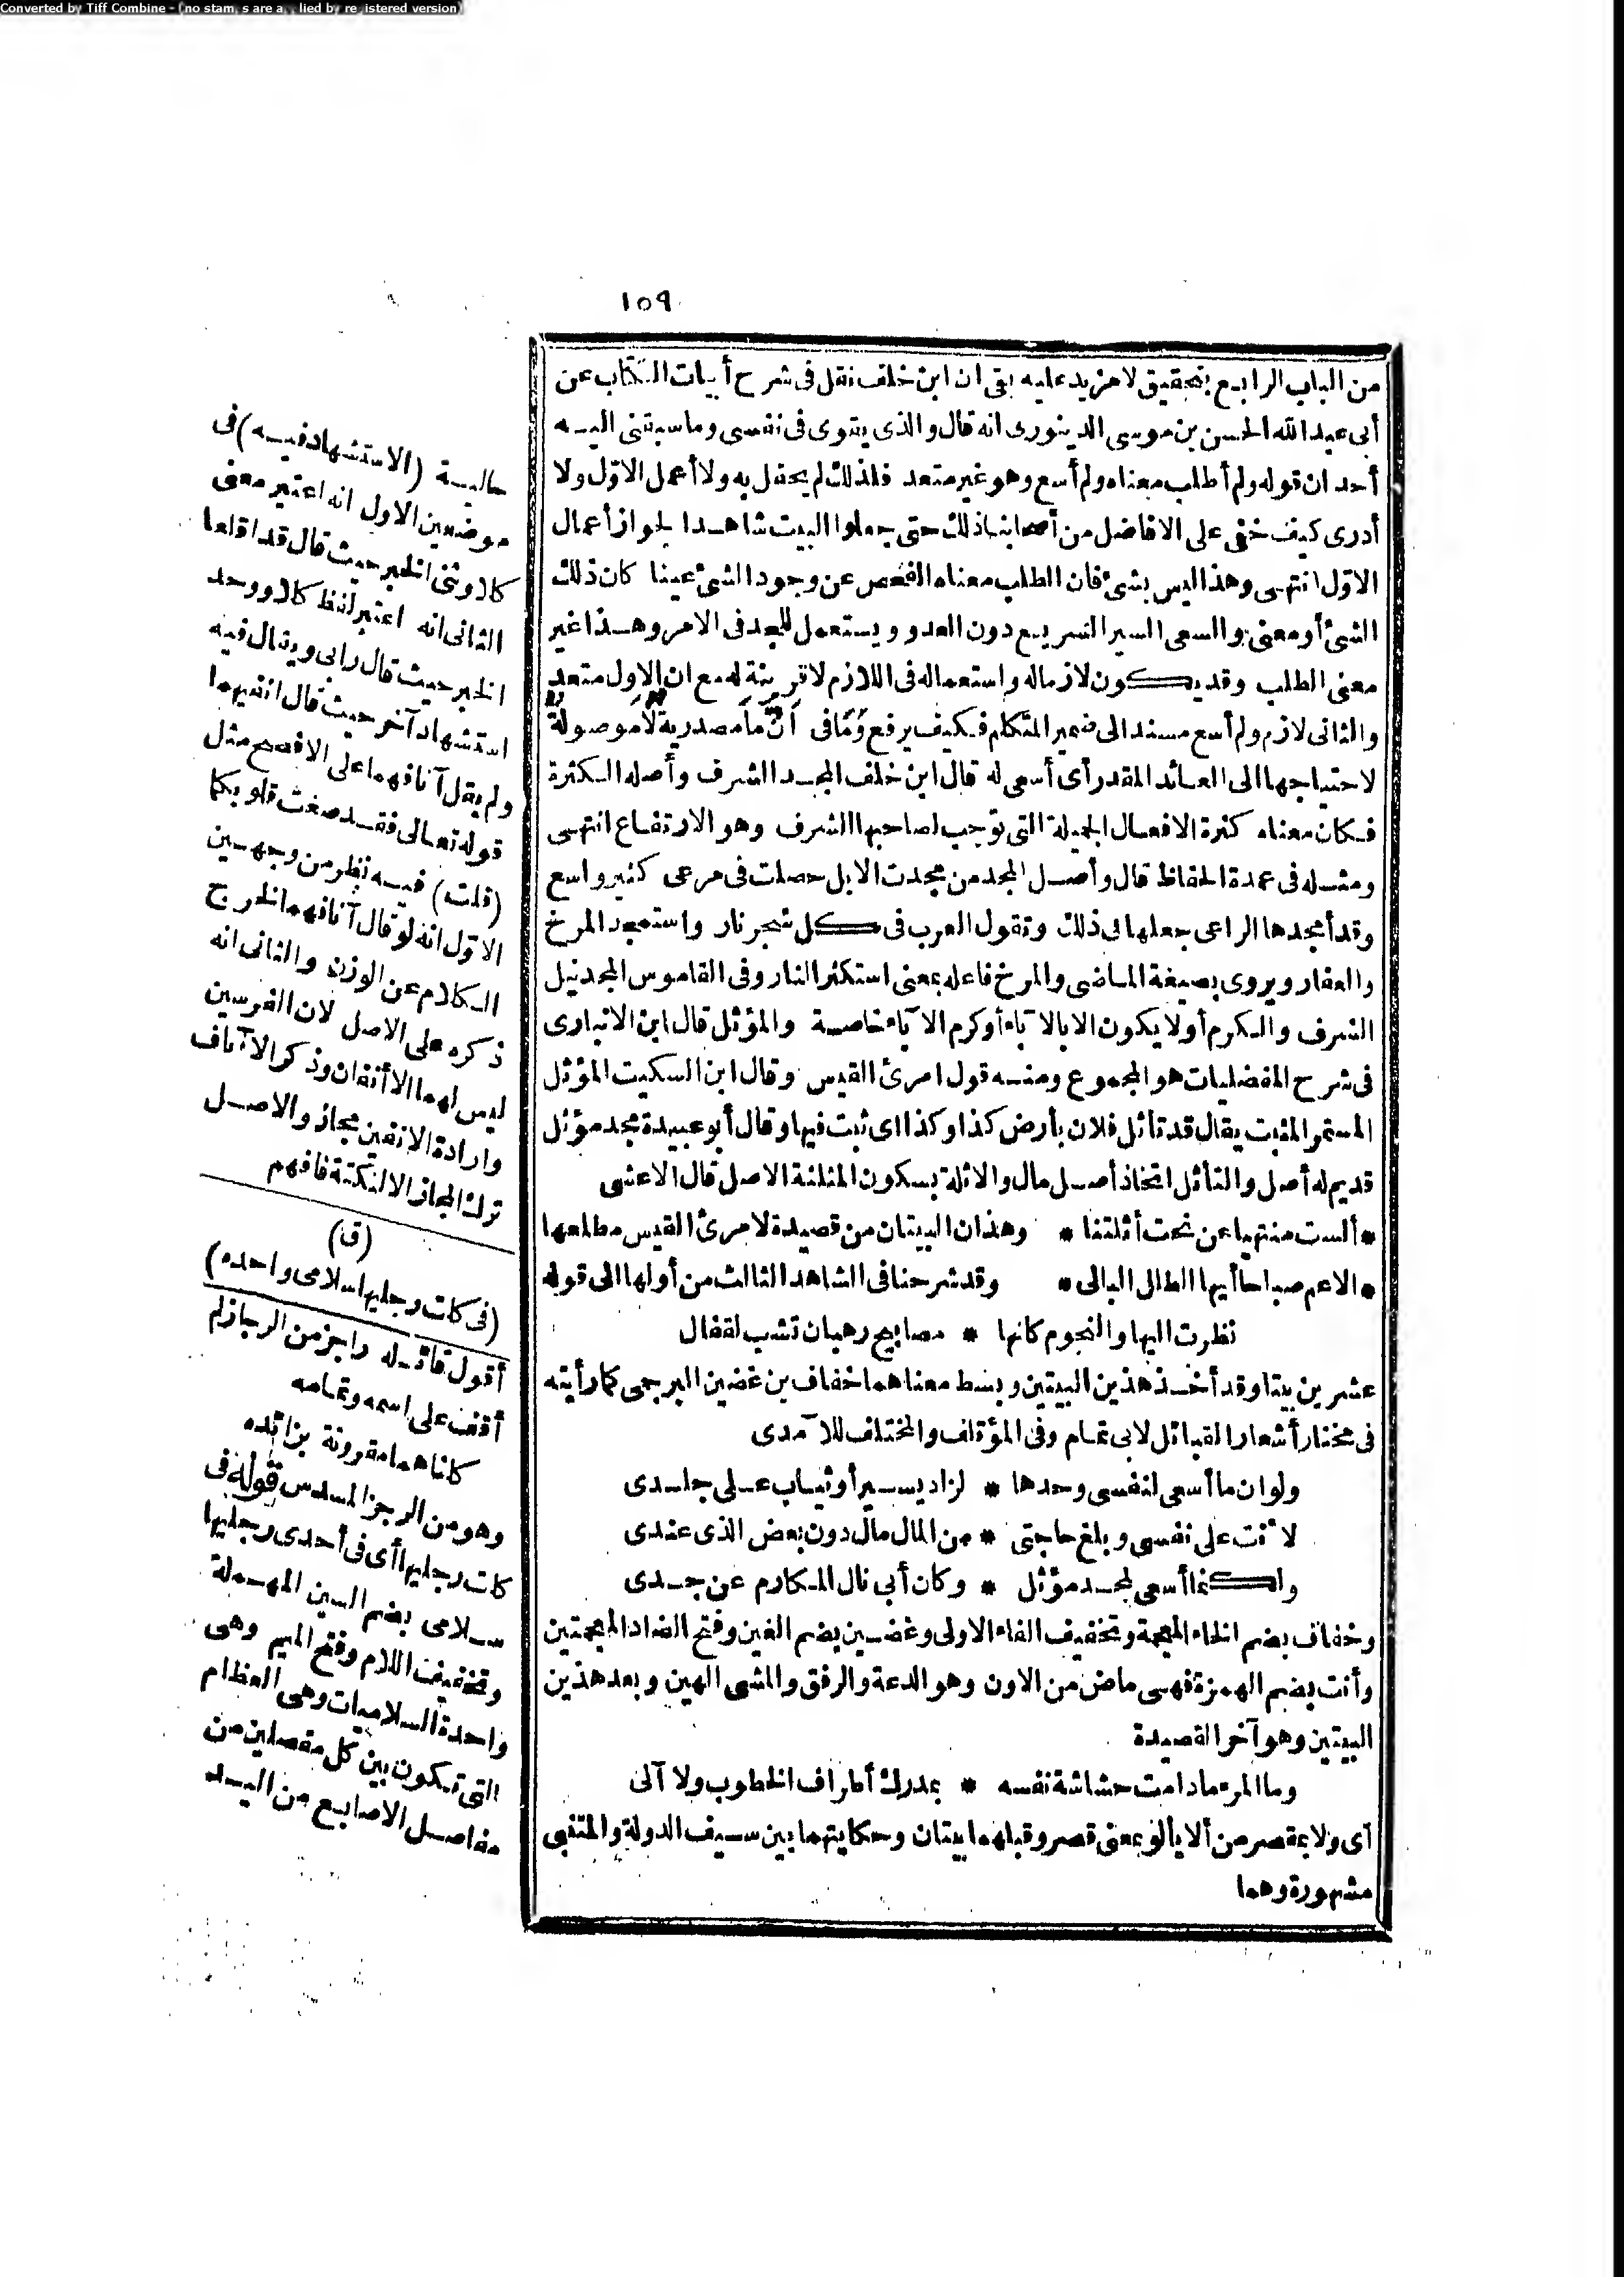 Converted by Tiff Combine - (no stamps are applied by registered version)
١٥٩
من الباب الرابع بتحقيق لا مزيد عليه بقى ان ابن خلف نقل فى شرح أبيات الكتاب عن
أبى عبد الله الحسن بن موسى الدينورى انه قال والذى يقوى فى نفسى وما سبقنى اليه
أحد ان قوله ولم أطلب معناه ولم أسع وهو غير متعد فلذلك لم يحفل به ولا أعمل الاوّل ولا
أدرى كيف خفى على الافاضل من أصحابنا ذلك حتى جعلوا البيت شاهدا لجواز أعمال
الاوّل انتهى وهذا ليس بشئ فان الطلب معناه الفحص عن وجود الشئ عينا كان ذلك
الشئ أو معنى والسعى السير السريع دون العدو ويستعمل للجد فى الامر وهذا غير
معنى الطلب وقد يكون لازما له واستعماله فى اللازم لا قرينة له مع ان الاول متعد
والثانى لازم ولم أسع مسند الى ضمير المتكلم فكيف يرفع وَمَا فى أنّ ما مصدرية لا موصولة
لاحتياجها الى العائد المقدر أى أسعى له قال ابن خلف المجد الشرف وأصله الكثرة
فكان معناه كثرة الافعال الجميلة التى توجب لصاحبها الشرف وهو الارتفاع انتهى
ومثله فى عمدة الحفاظ قال وأصل المجد من مجدت الابل حصلت فى مرعى كثير واسع
وقد أمجدها الراعى جعلها فى ذلك وتقول العرب فى كل شجر نار واستمجد المرخ
والعفار ويروى بصيغة الماضى والمرخ فاعله بمعنى استكثر النار وفى القاموس المجد نيل
الشرف والكرم أو لا يكون الا بالآباء أو كرم الآباء خاصة والمؤثل قال ابن الانبارى
فى شرح المفضليات هو المجموع ومنه قول امرئ القيس وقال ابن السكيت المؤثل
المستمر المثبت يقال قد تأثل فلان بأرض كذا وكذا اى ثبت فيها وقال أبو عبيدة مجد مؤثل
قديم له أصل والتأثل اتخاذ أصل مال والاثلة بسكون المثلثة الاصل قال الاعشى
* ألست منتهيا عن نحت أثلتنا * وهذان البيتان من قصيدة لامرئ القيس مطلعها
* الاعم صباحا أيها الطلل البالى * وقد شرحنا فى الشاهد الثالث من أولها الى قوله
نظرت اليها والنجوم كانها * مصابيح رهبان تشب لقفال
عشرين بيتا وقد أخذ هذين البيتين وبسط معناهما خفاف بن غضين البرجمى كما رأيته
فى مختار أشعار القبائل لابى تمام وفى المؤتلف والمختلف للآمدى
ولو ان ما أسعى لنفسى وحدها * لزاد يسير أو ثياب على جلدى
لأنت على نفسى وبلغ حاجتى * من المال مال دون بعض الذى عندى
ولكنما أسعى لمجد مؤثل * وكان أبى نال المكارم عن جدى
وخفاف بضم الخاء المعجمة وتخفيف الفاء الاولى وغضين بضم الغين وفتح الضاد المعجمتين
وأنت بضم الهمزة فهى ماض من الاون وهو الدعة والرفق والمشى الهين وبعد هذين
البيتين وهو آخر القصيدة
وما المرء ما دامت حشاشة نفسه * بمدرك أطراف الخطوب ولا آلى
آى ولا بمقصر من ألا يألو بمعنى قصر وقبلهما بيتان وحكايتهما بين سيف الدولة والمتنبى
مشهورة وهما
حالية (الاستشهاد فيه) فى
موضعين الاول انه اعتبر معنى
كلا وثنى الخبر حيث قال قد اقلعا
الثانى انه اعتبر لفظ كلا ووحد
الخبر حيث قال رابى ويقال فيه
استشهاد آخر حيث قال انفيهما
ولم يقل آنافهما على الافصح مثل
قوله تعالى فقد صغت قلوبكما
(قلت) فيه نظر من وجهين
الاوّل انه لو قال آنافهما لخرج
الكلام عن الوزن والثانى انه
ذكره على الاصل لان الفرسين
ليس لهما الا أنفان وذكر الآناف
وارادة الانفين مجاز والاصل
ترك المجاز الا لنكتة فافهم
(ق)
(فى كلت رجليها سلامى واحده)
أقول قائله راجز من الرجاز لم
أقف على اسمه وتمامه
كلتاهما مقرونة بزائده
وهو من الرجز المسدس قوله فى
كلت رجليها أى فى أحدى رجليها
سلامى بضم السين المهملة
وتخفيف اللام وفتح الميم وهى
واحدة السلاميات وهى العظام
التى تكون بين كل مفصلين من
مفاصل الاصابع من اليد